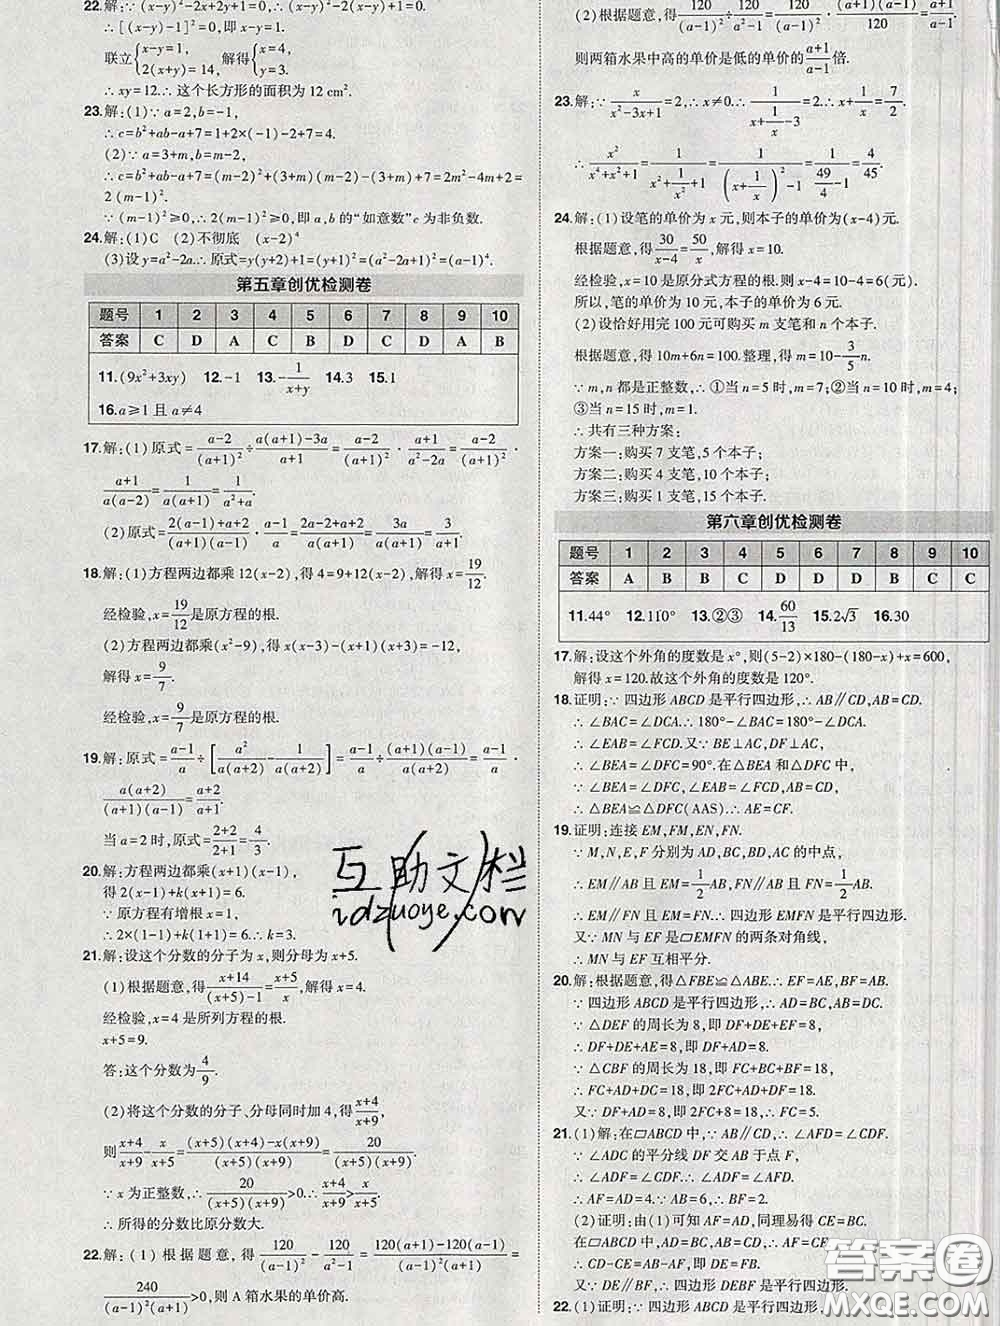 22.解:∵(x-y)²-2x+2y+1=0,∴(x-y)²-2(x-y)+1=0.
∴[(x-y)-1]²=0,即x-y=1.
联立{x-y=1, 2(x+y)=14, 解得{x=4, y=3.
∴xy=12.∴这个长方形的面积为12 cm².
23.解:(1)∵a=2,b=-1,
∴c=b²+ab-a+7=1+2×(-1)-2+7=4.
(2)∵a=3+m,b=m-2,
∴c=b²+ab-a+7=(m-2)²+(3+m)(m-2)-(3+m)+7=2m²-4m+2=
2(m-1)².
∵(m-1)²≥0,∴2(m-1)²≥0,即a,b的“如意数”c为非负数.
24.解:(1)C (2)不彻底 (x-2)⁴
(3)设y=a²-2a∴原式=y(y+2)+1=(y+1)²=(a²-2a+1)²=(a-1)⁴.
第五章创优检测卷
题号 1 2 3 4 5 6 7 8 9 10
答案 C D A C B C D D A B
11.(9x²+3xy) 12.-1 13.-1/(x+y) 14.3 15.1
16.a≥1且a≠4
17.解:(1)原式=(a-2)/(a+1)²÷(a(a+1)-3a)/(a+1)=(a-2)/(a+1)²·(a+1)/(a²-2a)=(a-2)/(a+1)²·
(a+1)/(a(a-2))=1/(a(a+1))=1/(a²+a).
(2)原式=(2(a-1)+a+2)/((a+1)(a-1))·(a-1)/a=3a/((a+1)(a-1))·(a-1)/a=3/(a+1).
18.解:(1)方程两边都乘12(x-2),得4=9+12(x-2),解得x=19/12.
经检验,x=19/12是原方程的根.
(2)方程两边都乘(x²-9),得x(x-3)-(x+3)(x+3)=-12,
解得x=9/7.
经检验,x=9/7是原方程的根.
19.解:原式=(a-1)/a÷[a²/(a(a+2))-1/(a(a+2))]=(a-1)/a÷((a+1)(a-1))/(a(a+2))=(a-1)/a·
(a(a+2))/((a+1)(a-1))=(a+2)/(a+1).
当a=2时,原式=(2+2)/(2+1)=4/3.
20.解:方程两边都乘(x+1)(x-1),
得2(x-1)+k(x+1)=6.
∵原方程有增根x=1,
∴2×(1-1)+k(1+1)=6.∴k=3.
21.解:设这个分数的分子为x,则分母为x+5.
(1)根据题意,得(x+14)/((x+5)-1)=(x+5)/x,解得x=4.
经检验,x=4是所列方程的根.
x+5=9.
答:这个分数为4/9.
(2)将这个分数的分子、分母同时加4,得(x+4)/(x+9),
则(x+4)/(x+9)-x/(x+5)=((x+5)(x+4)-x(x+9))/((x+5)(x+9))=20/((x+5)(x+9)).
∵x为正整数,∴20/((x+5)(x+9))>0.∴(x+4)/(x+9)>x/(x+5).
∴所得的分数比原分数大.
22.解:(1)根据题意,得120/(a-1)²-120/(a²-1)=(120(a+1)-120(a-1))/((a-1)²(a+1))=
240/((a-1)²(a+1))>0,则A箱水果的单价高.
(2)根据题意,得120/(a-1)²÷120/(a²-1)=120/(a-1)²·((a+1)(a-1))/120=(a+1)/(a-1).
则两箱水果中高的单价是低的单价的(a+1)/(a-1)倍.
23.解:∵x/(x²-3x+1)=2,∴x≠0.∴1/(x+1/x-3)=2.∴x+1/x=7/2.
∴x²/(x⁴+x²+1)=1/(x²+1/x²+1)=1/((x+1/x)²-1)=1/(49/4-1)=4/45.
24.解:(1)设笔的单价为x元,则本子的单价为(x-4)元.
根据题意,得30/(x-4)=50/x,解得x=10.
经检验,x=10是原分式方程的根.则x-4=10-4=6(元).
所以,笔的单价为10元,本子的单价为6元.
(2)设恰好用完100元可购买m支笔和n个本子.
根据题意,得10m+6n=100.整理,得m=10-3/5n.
∵m,n都是正整数,∴①当n=5时,m=7;②当n=10时,m=4;
③当n=15时,m=1.
∴共有三种方案:
方案一:购买7支笔,5个本子;
方案二:购买4支笔,10个本子;
方案三:购买1支笔,15个本子.
第六章创优检测卷
题号 1 2 3 4 5 6 7 8 9 10
答案 A B B C D D D B C C
11.44° 12.110° 13.②③ 14.60/13 15.2√3 16.30
17.解:设这个外角的度数是x°,则(5-2)×180-(180-x)+x=600,
解得x=120.故这个外角的度数是120°.
18.证明:∵四边形ABCD是平行四边形,∴AB∥CD,AB=CD.
∴∠BAC=∠DCA.∴180°-∠BAC=180°-∠DCA.
∴∠EAB=∠FCD.又∵BE⊥AC,DF⊥AC,
∴∠BEA=∠DFC=90°.在△BEA和△DFC中,
∵∠BEA=∠DFC,∠EAB=∠FCD,AB=CD,
∴△BEA≌△DFC(AAS).∴AE=CF.
19.证明:连接EM,FM,EN,FN.
∵M,N,E,F分别为AD,BC,BD,AC的中点,
∴EM∥AB且EM=1/2AB,FN∥AB且FN=1/2AB.
∴EM∥FN且EM=FN.∴四边形EMFN是平行四边形.
又∵MN与EF是▱EMFN的两条对角线,
∴MN与EF互相平分.
20.解:根据题意,得△FBE≌△ABE.∴EF=AE,BF=AB.
∵四边形ABCD是平行四边形,∴AD=BC,AB=DC.
∵△DEF的周长为8,即DF+DE+EF=8,
∴DF+DE+AE=8,即DF+AD=8.
∵△CBF的周长为18,即FC+BC+BF=18,
∴FC+AD+DC=18,即2FC+AD+DF=18.
又∵DF+AD=8,∴2FC+8=18.∴FC=5.
21.(1)解:在▱ABCD中,∵AB∥CD,∴∠AFD=∠CDF.
∵∠ADC的平分线DF交AB于点F,
∴∠ADF=∠CDF.∴∠AFD=∠ADF.
∴AF=AD=4.又∵AB=6,∴BF=2.
(2)证明:由(1)可知AF=AD,同理易得CE=BC.
在▱ABCD中,AD=BC,AB=CD,∴AF=CE.
∴CD-CE=AB-AF,即DE=BF.
又∵DE∥BF,∴四边形DEBF是平行四边形.
22.(1)证明:∵四边形ABCD是平行四边形,
互助文栏
idzuoye.com
答案圈
MXQE.COM